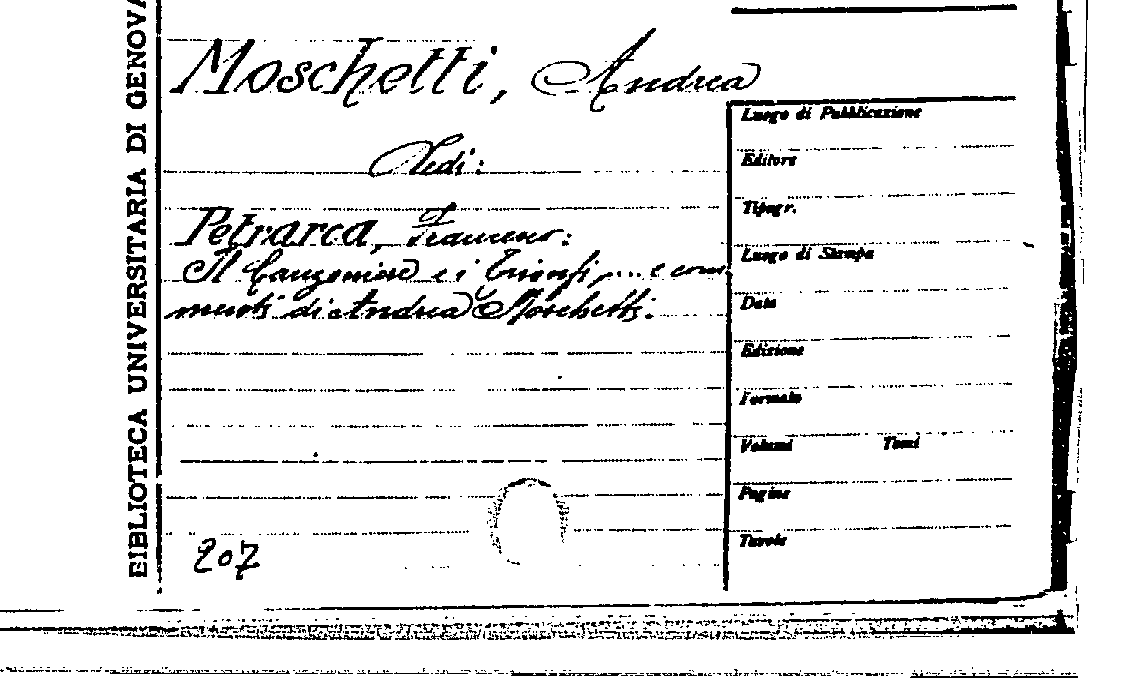 BIBLIOTECA UNIVERSITARIA DI GENOVA
Moschetti, Andrea
Vedi:
Petrarca, Francesco:
Il Canzoniere e i Trionfi,... e com
menti di Andrea Moschetti.
207
Luogo di Pubblicazione
Editore
Tipogr.
Luogo di Stampa
Data
Edizione
Formato
Volumi Tomi
Pagine
Tavole